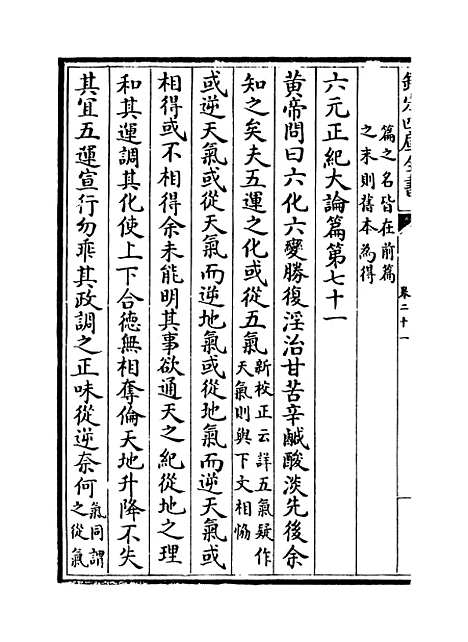 欽定四庫全書
卷二十一
篇之名皆在前篇
之末則舊本為得
六元正紀大論篇第七十一
黄帝問曰六化六變勝復淫治甘苦辛鹹酸淡先後余
知之矣夫五運之化或從五氣新校正云詳五氣疑作
天氣則與下文相恊
或逆天氣或從天氣而逆地氣或從地氣而逆天氣或
相得或不相得余未能明其事欲通天之紀從地之理
和其運調其化使上下合德無相奪倫天地升降不失
其宜五運宣行勿乖其政調之正味從逆奈何氣同謂
之從氣